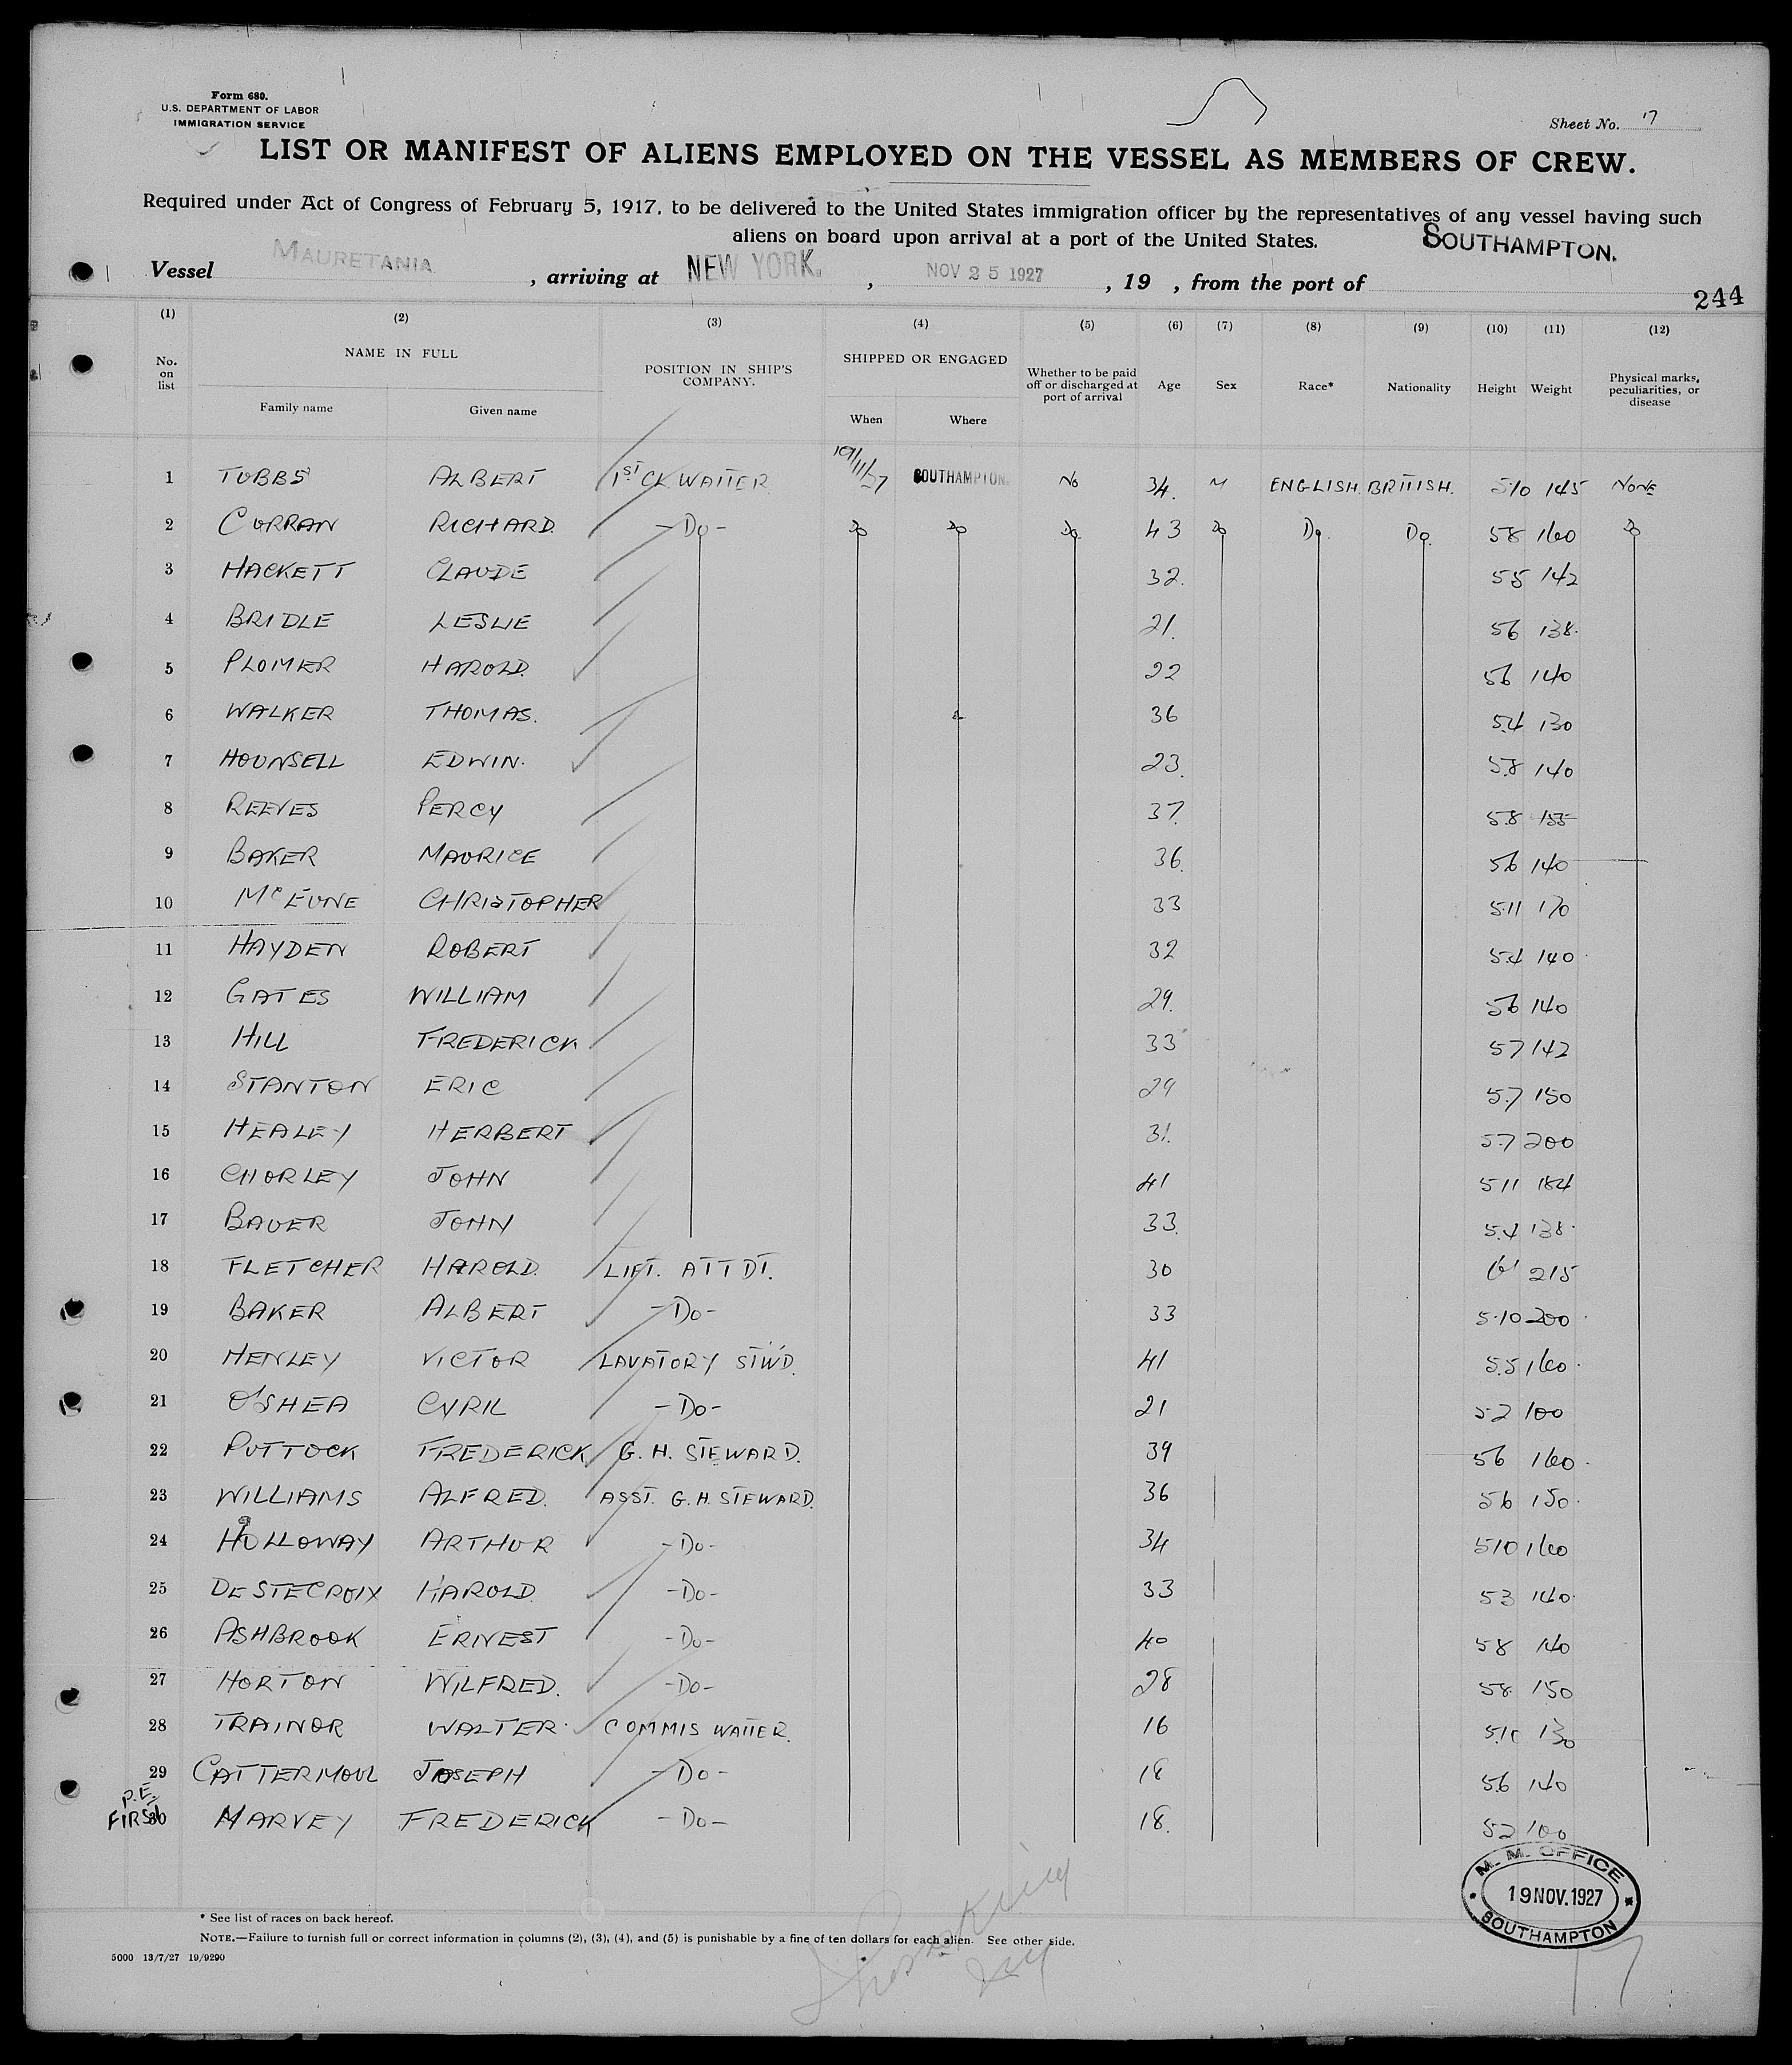 Form 680.
U.S. DEPARTMENT OF LABOR
IMMIGRATION SERVICE
Sheet No. 17
LIST OR MANIFEST OF ALIENS EMPLOYED ON THE VESSEL AS MEMBERS OF CREW.
Required under Act of Congress of February 5, 1917, to be delivered to the United States immigration officer by the representatives of any vessel having such
aliens on board upon arrival at a port of the United States.
Vessel MAURETANIA, arriving at NEW YORK., NOV 25 1927, 19 , from the port of SOUTHAMPTON.
244
(1) (2) (3) (4) (5) (6) (7) (8) (9) (10) (11) (12)
No. on list NAME IN FULL POSITION IN SHIP'S COMPANY. SHIPPED OR ENGAGED Whether to be paid off or discharged at port of arrival Age Sex Race* Nationality Height Weight Physical marks, peculiarities, or disease
Family name Given name When Where
1 TUBBS ALBERT 1ST CK WAITER 19/11/27 SOUTHAMPTON. No 34. M ENGLISH. BRITISH. 510 145 NONE
2 CURRAN RICHARD. -Do- Do Do Do. 43 Do Do. Do. 58 160 Do
3 HACKETT CLAUDE 32. 55 142
4 BRIDLE LESLIE 21. 56 138.
5 PLOMER HAROLD. 22 56 140
6 WALKER THOMAS. 36 5.4 130
7 HOUNSELL EDWIN. 23. 5.8 140
8 REEVES PERCY 37. 5.8 155
9 BAKER MAURICE 36. 56 140
10 McEUNE CHRISTOPHER 33 5.11 170
11 HAYDEN ROBERT 32 5.4 140.
12 GATES WILLIAM 29. 56 140
13 HILL FREDERICK 33 57 142
14 STANTON ERIC 29 5.7 150
15 HEALEY HERBERT 31. 5.7 200
16 CHORLEY JOHN 41 511 184
17 BAUER JOHN 33. 5.4 138.
18 FLETCHER HAROLD. LIFT. ATTDT. 30 6' 215
19 BAKER ALBERT -Do- 33 5.10 200
20 HENLEY VICTOR LAVATORY STWD. 41 5.5 160.
21 O'SHEA CYRIL -Do- 21 52 100
22 PUTTOCK FREDERICK G. H. STEWARD. 39 56 160.
23 WILLIAMS ALFRED. ASST. G.H. STEWARD. 36 56 150.
24 HOLLOWAY ARTHUR -Do- 34 510 160
25 DE STECROIX HAROLD. -Do- 33 53 140.
26 ASHBROOK ERNEST -Do- 40 58 140
27 HORTON WILFRED. -Do- 28 58. 150
28 TRAINOR WALTER. COMMIS WAITER. 16 5.10 130
29 CATTERMOUL JOSEPH -Do- 18 56 140
P.E.
FIRST
30 HARVEY FREDERICK -Do- 18. 52 100
M. M. OFFICE
19 NOV. 1927
SOUTHAMPTON
* See list of races on back hereof.
NOTE.—Failure to furnish full or correct information in columns (2), (3), (4), and (5) is punishable by a fine of ten dollars for each alien. See other side.
5000 13/7/27 19/9290